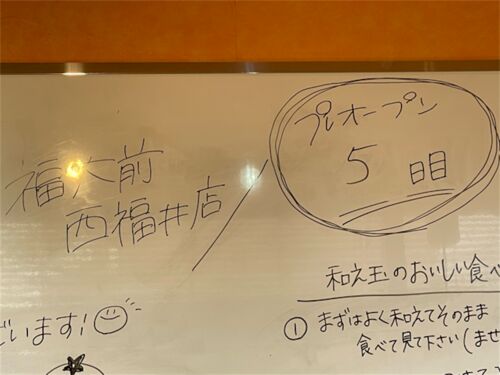 福大前
西福井店
プレオープン
5日目
和え玉のおいしい食べ
ざいます!
① まずはよく和えてそのまま
食べて見て下さい(ませ